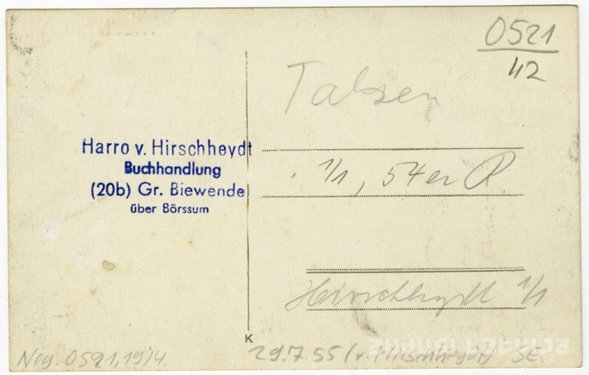 0521
42
Talsen
Harro v. Hirschheydt
Buchhandlung
(20b) Gr. Biewende
über Börssum
1/1, 54er R
Hirschheydt 1/1
K
Neg. 0521,19/4.
29.7 55 (v. Hirschheydt) SE.